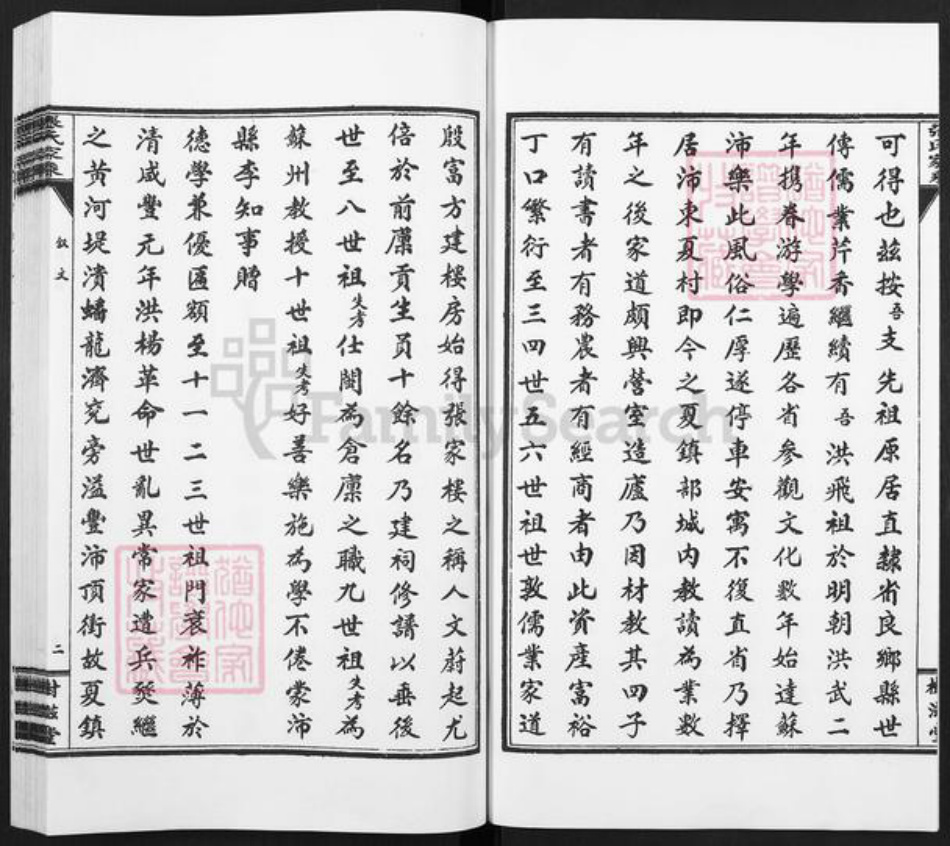 可得也茲按吾支先祖原居直隸省良鄉縣世
傳儒業芹香繼續有吾洪飛祖於明朝洪武二
年携眷游學遍歷各省參觀文化數年始達蘇
沛樂此風俗仁厚遂停車安寓不復直省乃擇
居沛東夏村即今之夏鎮部城內教讀為業數
年之後家道頗興營室造廬乃因材教其四子
有讀書者有務農者有經商者由此資產富裕
丁口繁衍至三四世五六世祖世敦儒業家道
張氏家乘
叙文
二
殷富方建樓房始得張家樓之稱人文蔚起尤
倍於前廩貢生員十餘名乃建祠修譜以垂後
世至八世祖失考仕閩為倉廩之職九世祖失考為
蘇州教授十世祖失考好善樂施為學不倦蒙沛
縣李知事贈
德學兼優匾額至十一二三世祖門衰祚薄於
清咸豐元年洪楊革命世亂異常家遭兵燹繼
之黃河堤潰蟠龍濟兖旁溢豐沛頂衝故夏鎮
FamilySearch